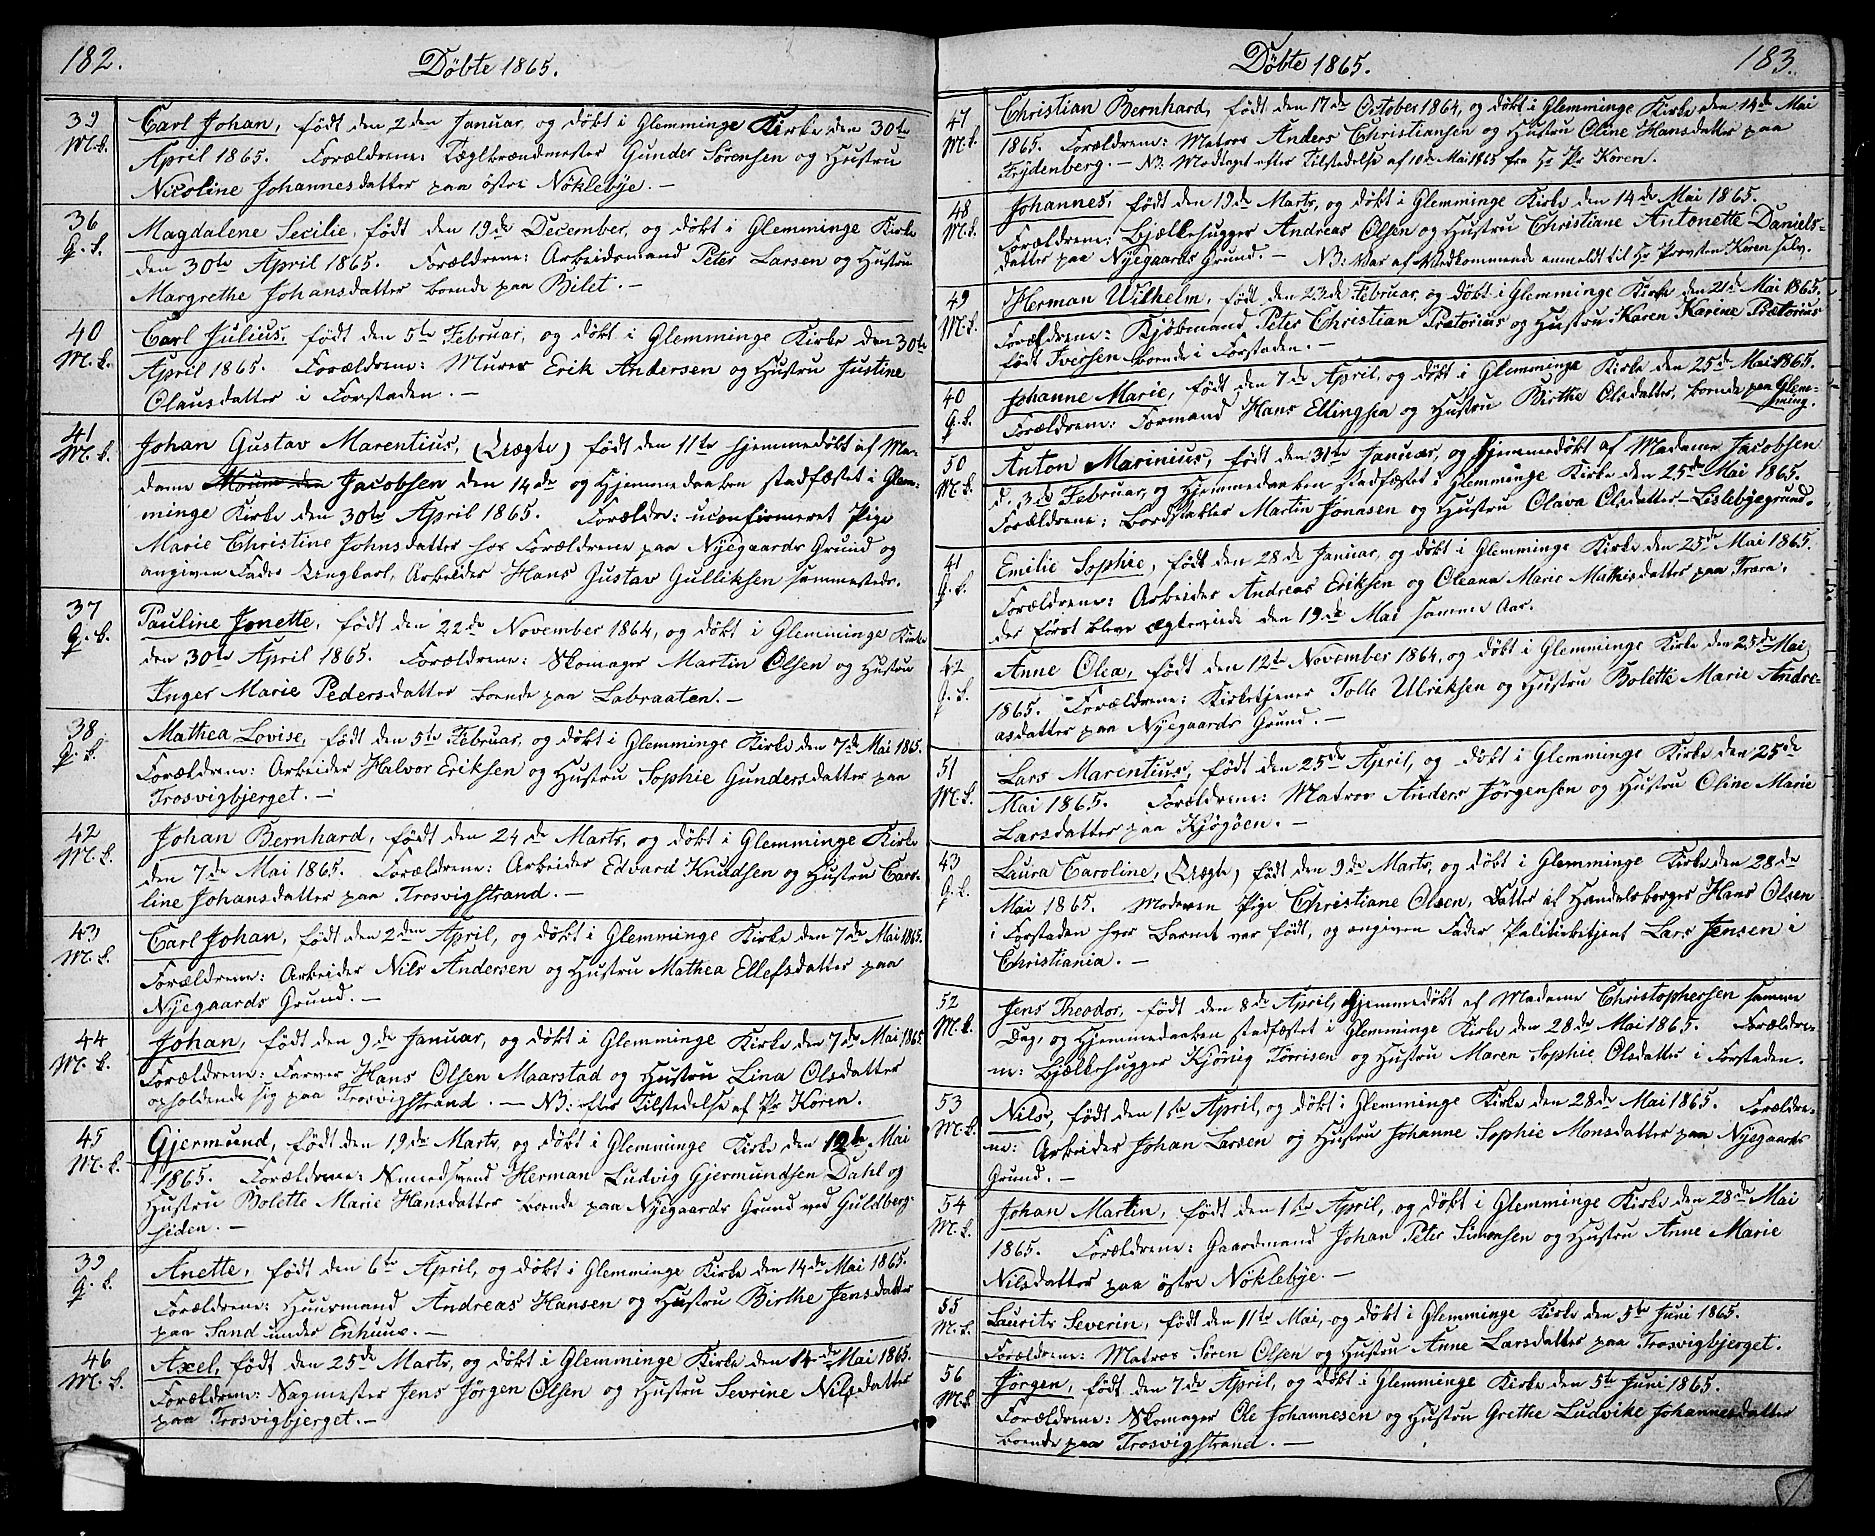 182.
Döbte 1865.
39
M.k.
Carl Johan, född den 2den Januar, og döbt i Glemminge Kirke den 30te
April 1865. Forældrene: Teglbrændmester Gunder Sörensen og Hustru
Nicoline Johannesdatter paa östre Nöklebÿe. —
36
Q.k.
Magdalene Secilie, födt den 19de December, og döbt i Glemminge Kirke
den 30te April 1865. Forældrene: Arbeidsmand Peter Larsen og Hustru
Margrethe Johansdatter boende paa Bilet. —
40
M.k.
Carl Julius, födt den 5te Februar, og döbt i Glemminge Kirke den 30te
April 1865. Forældrene: Murer Erik Andersen og Hustru Justine
Clausdatter i Forstaden. —
41
M.k.
Johan Gustav Marentius, (Uægte) födt den 11te hjemmedöbt af Ma-
dame Jacobsen den 14de og Hjemmedaaben stadfæstet i Glem-
minge Kirke den 30te April 1865. Forældre: uconfirmeret Pige
Marie Christine Johnsdatter hos Forældrene paa Nÿegaards Grund og
angiven Fader Ungkarl, Arbeider Hans Gustav Gulliksen sammesteds.
37
Q.k.
Pauline Jonette, födt den 22de November 1864, og döbt i Glemminge Kirke
den 30te April 1865. Forældrene: Skomager Martin Olsen og Hustru
Inger Marie Pedersdatter boende paa Labraaten. —
38
Q.k.
Mathea Lovise, födt den 5te Februar, og döbt i Glemminge Kirke den 7de Mai 1865.
Forældrene: Arbeider Halvor Eriksen og Hustru Sophie Gundersdatter paa
Trosvigbjerget. —
42
M.k.
Johan Bernhard, födt den 24de Marts, og döbt i Glemminge Kirke
den 7de Mai 1865. Forældrene: Arbeider Edvard Knudsen og Hustru Caro-
line Johansdatter paa Trosvigstrand. —
43
M.k.
Carl Johan, födt den 2den April, og döbt i Glemminge Kirke den 7de Mai 1865.
Forældrene: Arbeider Nils Andersen og Hustru Mathea Ellefsdatter paa
Nÿegaards Grund. —
44
M.k.
Johan, födt den 9de Januar, og döbt i Glemminge Kirke den 7de Mai 1865
Forældrene: Farver Hans Olsen Maarstad og Hustru Lina Olsdatter
opholdende sig paa Trosvigstrand. — NB: efter Tilstedelse af Pr Koren.
45
M.k.
Gjermund, födt den 19de Marts, og döbt i Glemminge Kirke den 12te Mai
1865. Forældrene: Smedsvend Herman Ludvig Gjermundsen Dahl og
Hustru Bolette Marie Hansdatter boende paa Nÿegaards Grund ved Guldberg-
siden. —
39
Q.k.
Anette, födt den 6te April, og döbt i Glemminge Kirke den 14de Mai 1865.
Forældrene: Huusmand Andreas Hansen og Hustru Birthe Jensdatter
paa Sand under Enhuus. —
46
M.k.
Axel, födt den 25de Marts, og döbt i Glemminge Kirke den 14de Mai 1865.
Forældrene: Sagmester Jens Jörgen Olsen og Hustru Sevrine Nilsdatter
paa Trosvigbjerget. —
Döbte 1865.
183.
47
M.k.
Christian Bernhard, födt den 17de October 1864, og döbt i Glemminge Kirke den 14de Mai
1865. Forældrene: Matros Anders Christiansen og Hustru Oline Hansdatter paa
Frÿdenberg. — NB. Modtaget efter Tilstedelse af 10de Mai 1865 fra Hr Pr Koren.
48
M.k.
Johannes, födt den 19de Marts, og döbt i Glemminge Kirke den 14de Mai 1865.
Forældrene: Bjælkehugger Andreas Olsen og Hustru Christiane Antonette Daniels-
datter paa Nÿegaards Grund. — NB: Var af Vedkommende anmeldt til Hr Provsten Koren selv.
49
M.k.
Herman Wilhelm, födt den 23de Februar, og döbt i Glemminge Kirke den 21de Mai 1865.
Forældrene: Kjöbmand Peter Christian Prætorius og Hustru Karen Karine Prætorius
födt Iversen boende i Forstaden. —
40
Q.k.
Johanne Marie, födt den 7de April, og döbt i Glemminge Kirke den 25de Mai 1865.
Forældrene: Formand Hans Ellingsen og Hustru Birthe Olsdatter, boende paa Glem-
ming.
50
M.k.
Anton Marinius, födt den 31te Januar, og hjemmedöbt af Madame Jacobsen
d. 3de Februar, og Hjemmedaaben stadfæstet i Glemminge Kirke den 25de Mai 1865.
Forældrene: Bordstabler Martin Jonasen og Hustru Olava Olsdatter Lislebÿegrund.
41
Q.k.
Emilie Sophie, födt den 28de Januar, og döbt i Glemminge Kirke den 25de Mai 1865.
Forældrene: Arbeider Andreas Eriksen og Oleana Marie Mathisdatter paa Trara,
der först bleve ægteviede den 19de Mai samme Aar.
42
Q.k.
Anne Olea, födt den 12te November 1864, og döbt i Glemminge Kirke den 25de Mai
1865. Forældrene: Kirketjener Tolle Ulriksen og Hustru Bolette Marie Andre-
asdatter paa Nÿegaards Grund. —
51
M.k.
Lars Marentius, födt den 25de April, og döbt i Glemminge Kirke den 25de
Mai 1865. Forældrene: Matros Anders Jörgensen og Hustru Oline Marie
Larsdatter paa Kjögöen. —
43
Q.k.
Laura Caroline, (Uægte) födt den 9de Marts, og döbt i Glemminge Kirke den 28de
Mai 1865. Moderen Pige Christiane Olsen, Datter af Handelsborger Hans Olsen
i Forstaden hvor Barnet var födt, og angiven Fader Politiebetjent Lars Jensen i
Christiania. —
52
M.k.
Jens Theodor, födt den 8de April, hjemmedöbt af Madame Christophersen samme
Dag, og Hjemmedaaben stadfæstet i Glemminge Kirke den 28de Mai 1865. Forældre-
ne: Bjælkehugger Kjöstig Torrisen og Hustru Maren Sophie Olsdatter i Forstaden.
53
M.k.
Nils, födt den 1ste April, og döbt i Glemminge Kirke den 28de Mai 1865. Forældre-
ne: Arbeider Johan Larsen og Hustru Johanne Sophie Monsdatter paa Nÿegaards
Grund. —
54
M.k.
Johan Martin, födt den 1ste April, og döbt i Glemminge Kirke den 28de Mai
1865. Forældrene: Gaardmand Johan Peter Simonsen og Hustru Anne Marie
Nilsdatter paa östre Nöklebÿe. —
55
M.k.
Laurits Severin, födt den 11te Mai, og döbt i Glemminge Kirke den 5te Juni 1865.
Forældrene: Matros Sören Olsen og Hustru Anne Larsdatter paa Trosvigbjerget.
56
M.k
Jörgen, födt den 7de April, og döbt i Glemminge Kirke den 5te Juni 1865.
Forældrene: Skomager Ole Johannesen og Hustru Grethe Ludvike Johannesdatter
boende paa Trosvigstrand. —